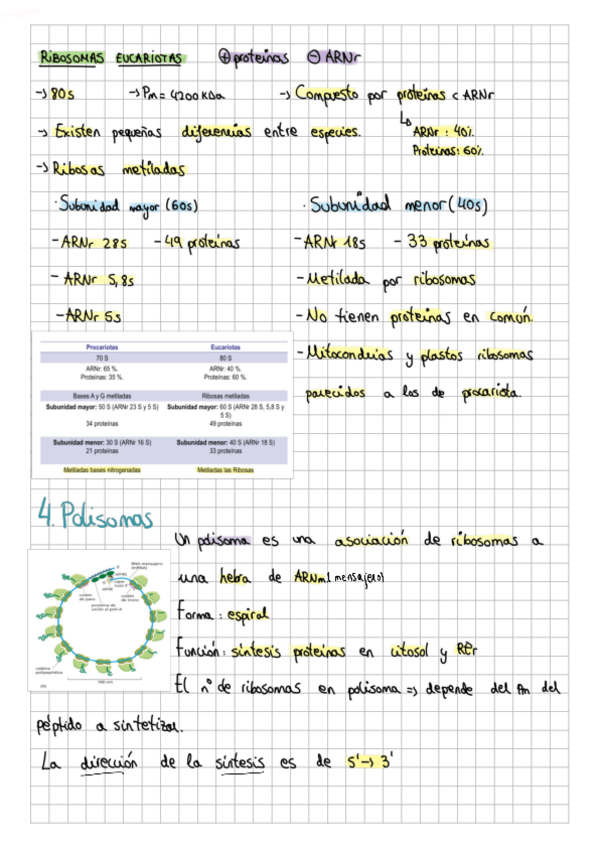 RIBOSOMAS EUCARIOTAS ⊕ proteinas ⊖ ARNr
-> 80s -> Pm = 4200 KDa -> Compuesto por proteinas < ARNr
ARNr : 40%
Proteinas: 60%
-> Existen pequeñas diferencias entre especies.
-> Ribosas metiladas
· Subunidad mayor (60s)
- ARNr 28s - 49 proteinas
- ARNr 5,8s
- ARNr 5s
· Subunidad menor (40s)
- ARNr 18s - 33 proteinas
- Metilada por ribosomas
- No tienen proteinas en común.
- Mitocondrias y plastos ribosomas
parecidos a los de procariota.
Procariotas Eucariotas
70 S 80 S
ARNr: 65 %. ARNr: 40 %.
Proteínas: 35 %. Proteínas: 60 %.
Bases A y G metiladas Ribosas metiladas
Subunidad mayor: 50 S (ARNr 23 S y 5 S) Subunidad mayor: 60 S (ARNr 28 S, 5,8 S y
5 S)
34 proteínas 49 proteínas
Subunidad menor: 30 S (ARNr 16 S) Subunidad menor: 40 S (ARNr 18 S)
21 proteínas 33 proteínas
Metiladas bases nitrogenadas Metiladas las Ribosas
4. Polisomas
Un polisoma es una asociación de ribosomas a
una hebra de ARNm (mensajero)
Forma : espiral
Función : síntesis proteinas en citosol y REr
El nº de ribosomas en polisoma => depende del Pm del
péptido a sintetizar.
La dirección de la síntesis es de 5' -> 3'
RNA mensajero
(mRNA)
codón
de paro
proteína de
unión al poli-A
codón
de inicio
cadena
polipeptídica
100 nm